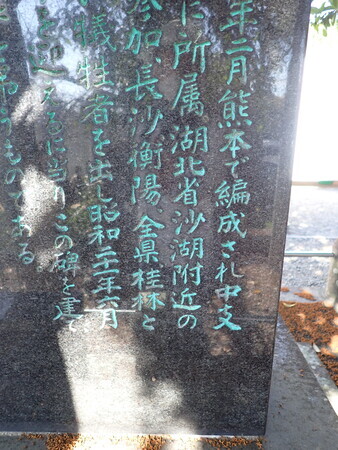 年二月熊本で編成され中支
に所属湖北省沙湖附近の
参加、長沙、衡陽、全県桂林と
犠牲者を出し昭和二十一年六月
を迎えるに当りこの碑を建て
を弔うものである